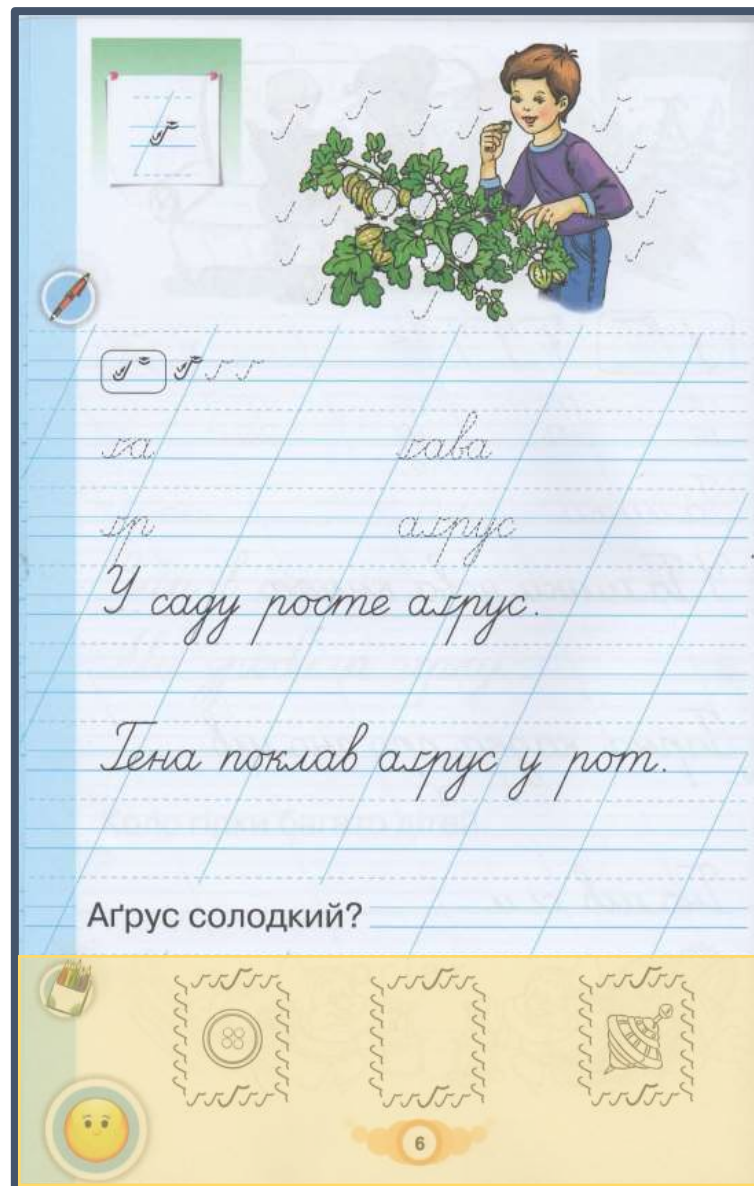 ґ
ґ ґ ґ ґ
ґа ґава
ґр аґрус
У саду росте аґрус.
Гена поклав аґрус у рот.
Аґрус солодкий?
6